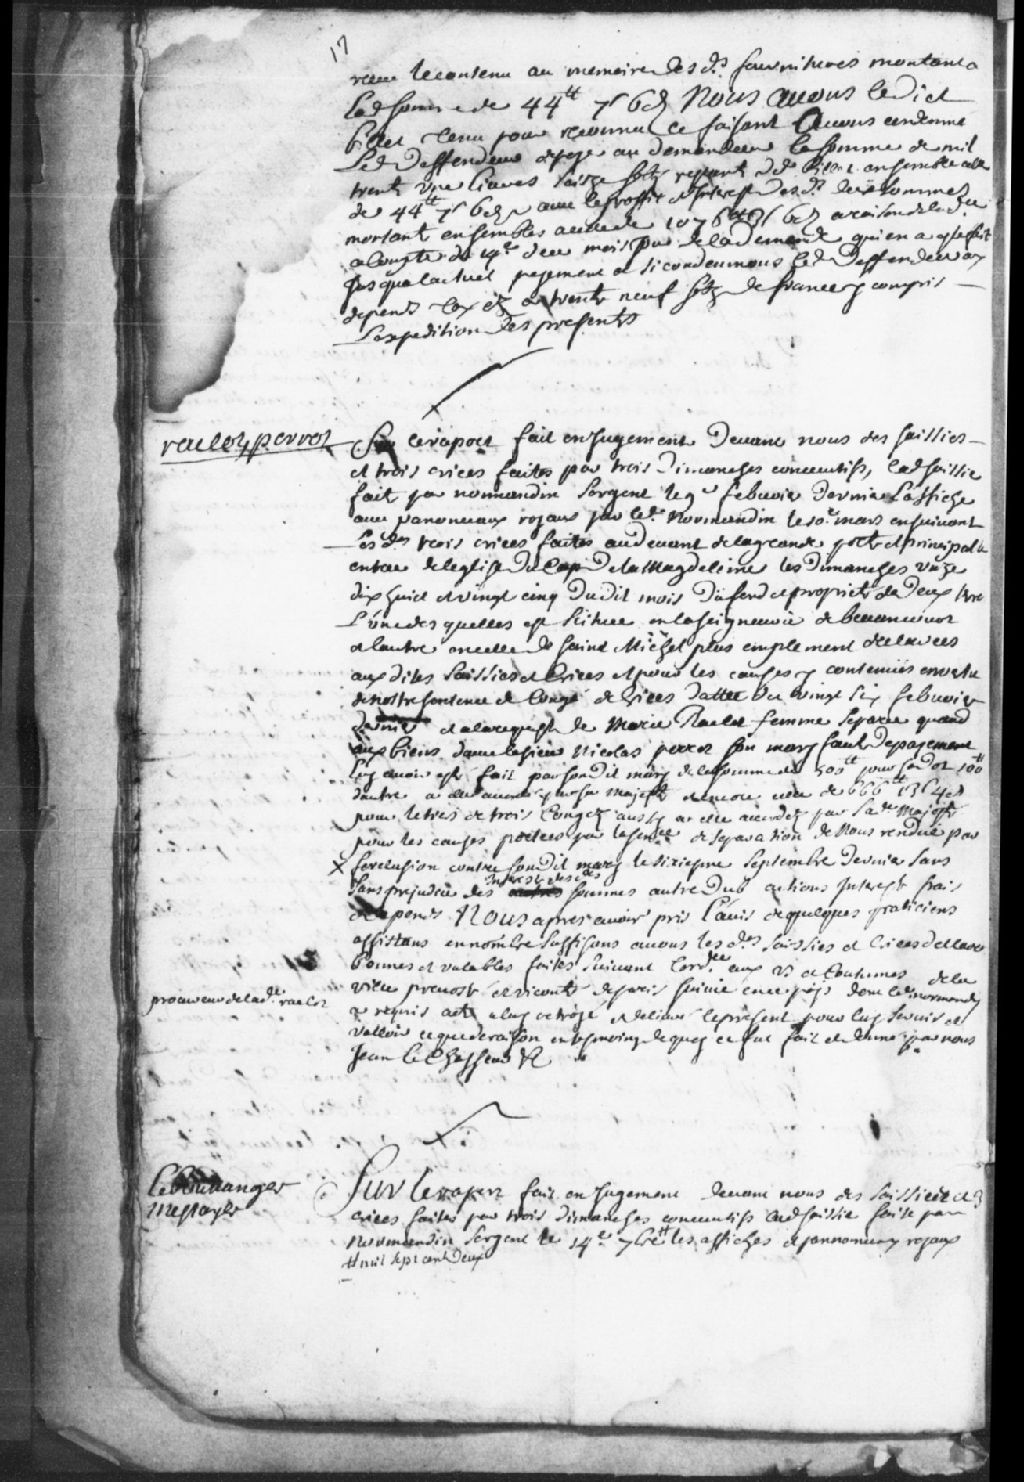 17
receu lecontenu au memoire des ds. fournitures montant a
lad somme de 44tt 7s 6d Nous avons led
billet tenu pour reconnu ce faisant avons condamné
led deffendeur a payer au demandeur la somme de mil
trente livres seize sols restant dud billet ensemble celle
de 44tt 7s 6d avec le proffit et Interest des ds. deux sommes
montant ensembles a celle de 1076tt 6d a raison de
a compter du 14e du mois jour de la demande
Jusqu alactuel payement et si condamnons led Deffendeur aux
depends et trente neuf sols de france y compris
L'expedition des presents
raclos perrot
Sur lerapord fait en Jugement Devant nous des saissies
et trois criées faites par trois dimanches concecutifs, lad saissie
fait par normandin sergent le 9e febvrier dernier L'affiche
aux panonceaux royaux par led. Normandin le 10e mars ensuivant
Les des trois criées faites audevant delagrande porte et principalle
entrée de leglise Du Cap De la Magdeleine les dimanches unze
dix huict et vingt cinq Dudit mois Du fond et proprieté de Deux terre
L'une des quelles est scituée en la seigneurie de becancourt
et lautre en celle de saint Michel plus emplement declarées
aux dites saissies et Criées et pour les causes y contenües en vertu
de nostre sentence de Congé de Criées dattée du vingt six febvrier
dernier et a la requeste de Marie Raclot femme separée quand
aux biens davec le sieur Nicolas perrot son mary faute de payement
luy avoir esté fait par son dit mary de la somme de 500tt pour son dot 100tt
dautre a sa majesté et encore celle de 666tt 13s 4d
pour le tiers de trois Congez aussy a elle accordez par sa de Majesté
pour les causes portées par la sence de separation de Nous rendüe par
forclusion contre son dit mary le sixiesme septembre dernier sans
sans prejudice des Interest des des sommes autre dub actions Interest frais
et depends Nous apres avoir pris l'avis de quelques praticiens
assistans en nombre suffisans avons les ds. saissies et Criées declaré
bonnes et valables faites suivant lordce aux us et Coutumes de la
ville prevosté et viconté de paris suivie en ce pays dont led. normandin
procureur de la de. raclos
a requis acte a luy octroyé et delivré le present pour luy servir et
valloir ce que de raison en tesmoing dequoy ce fut fait et donné par nous
Jean le Chasseur &
le boullanger
mestayer
Sur le raport fait en Jugement devant nous des saissies et 3
criées faites par trois dimanches concecutifs lad saissie faite par
Normandin sergent le 14e 7bre tt les affiches et pannonceaux royaux
tt mil sept cent deux